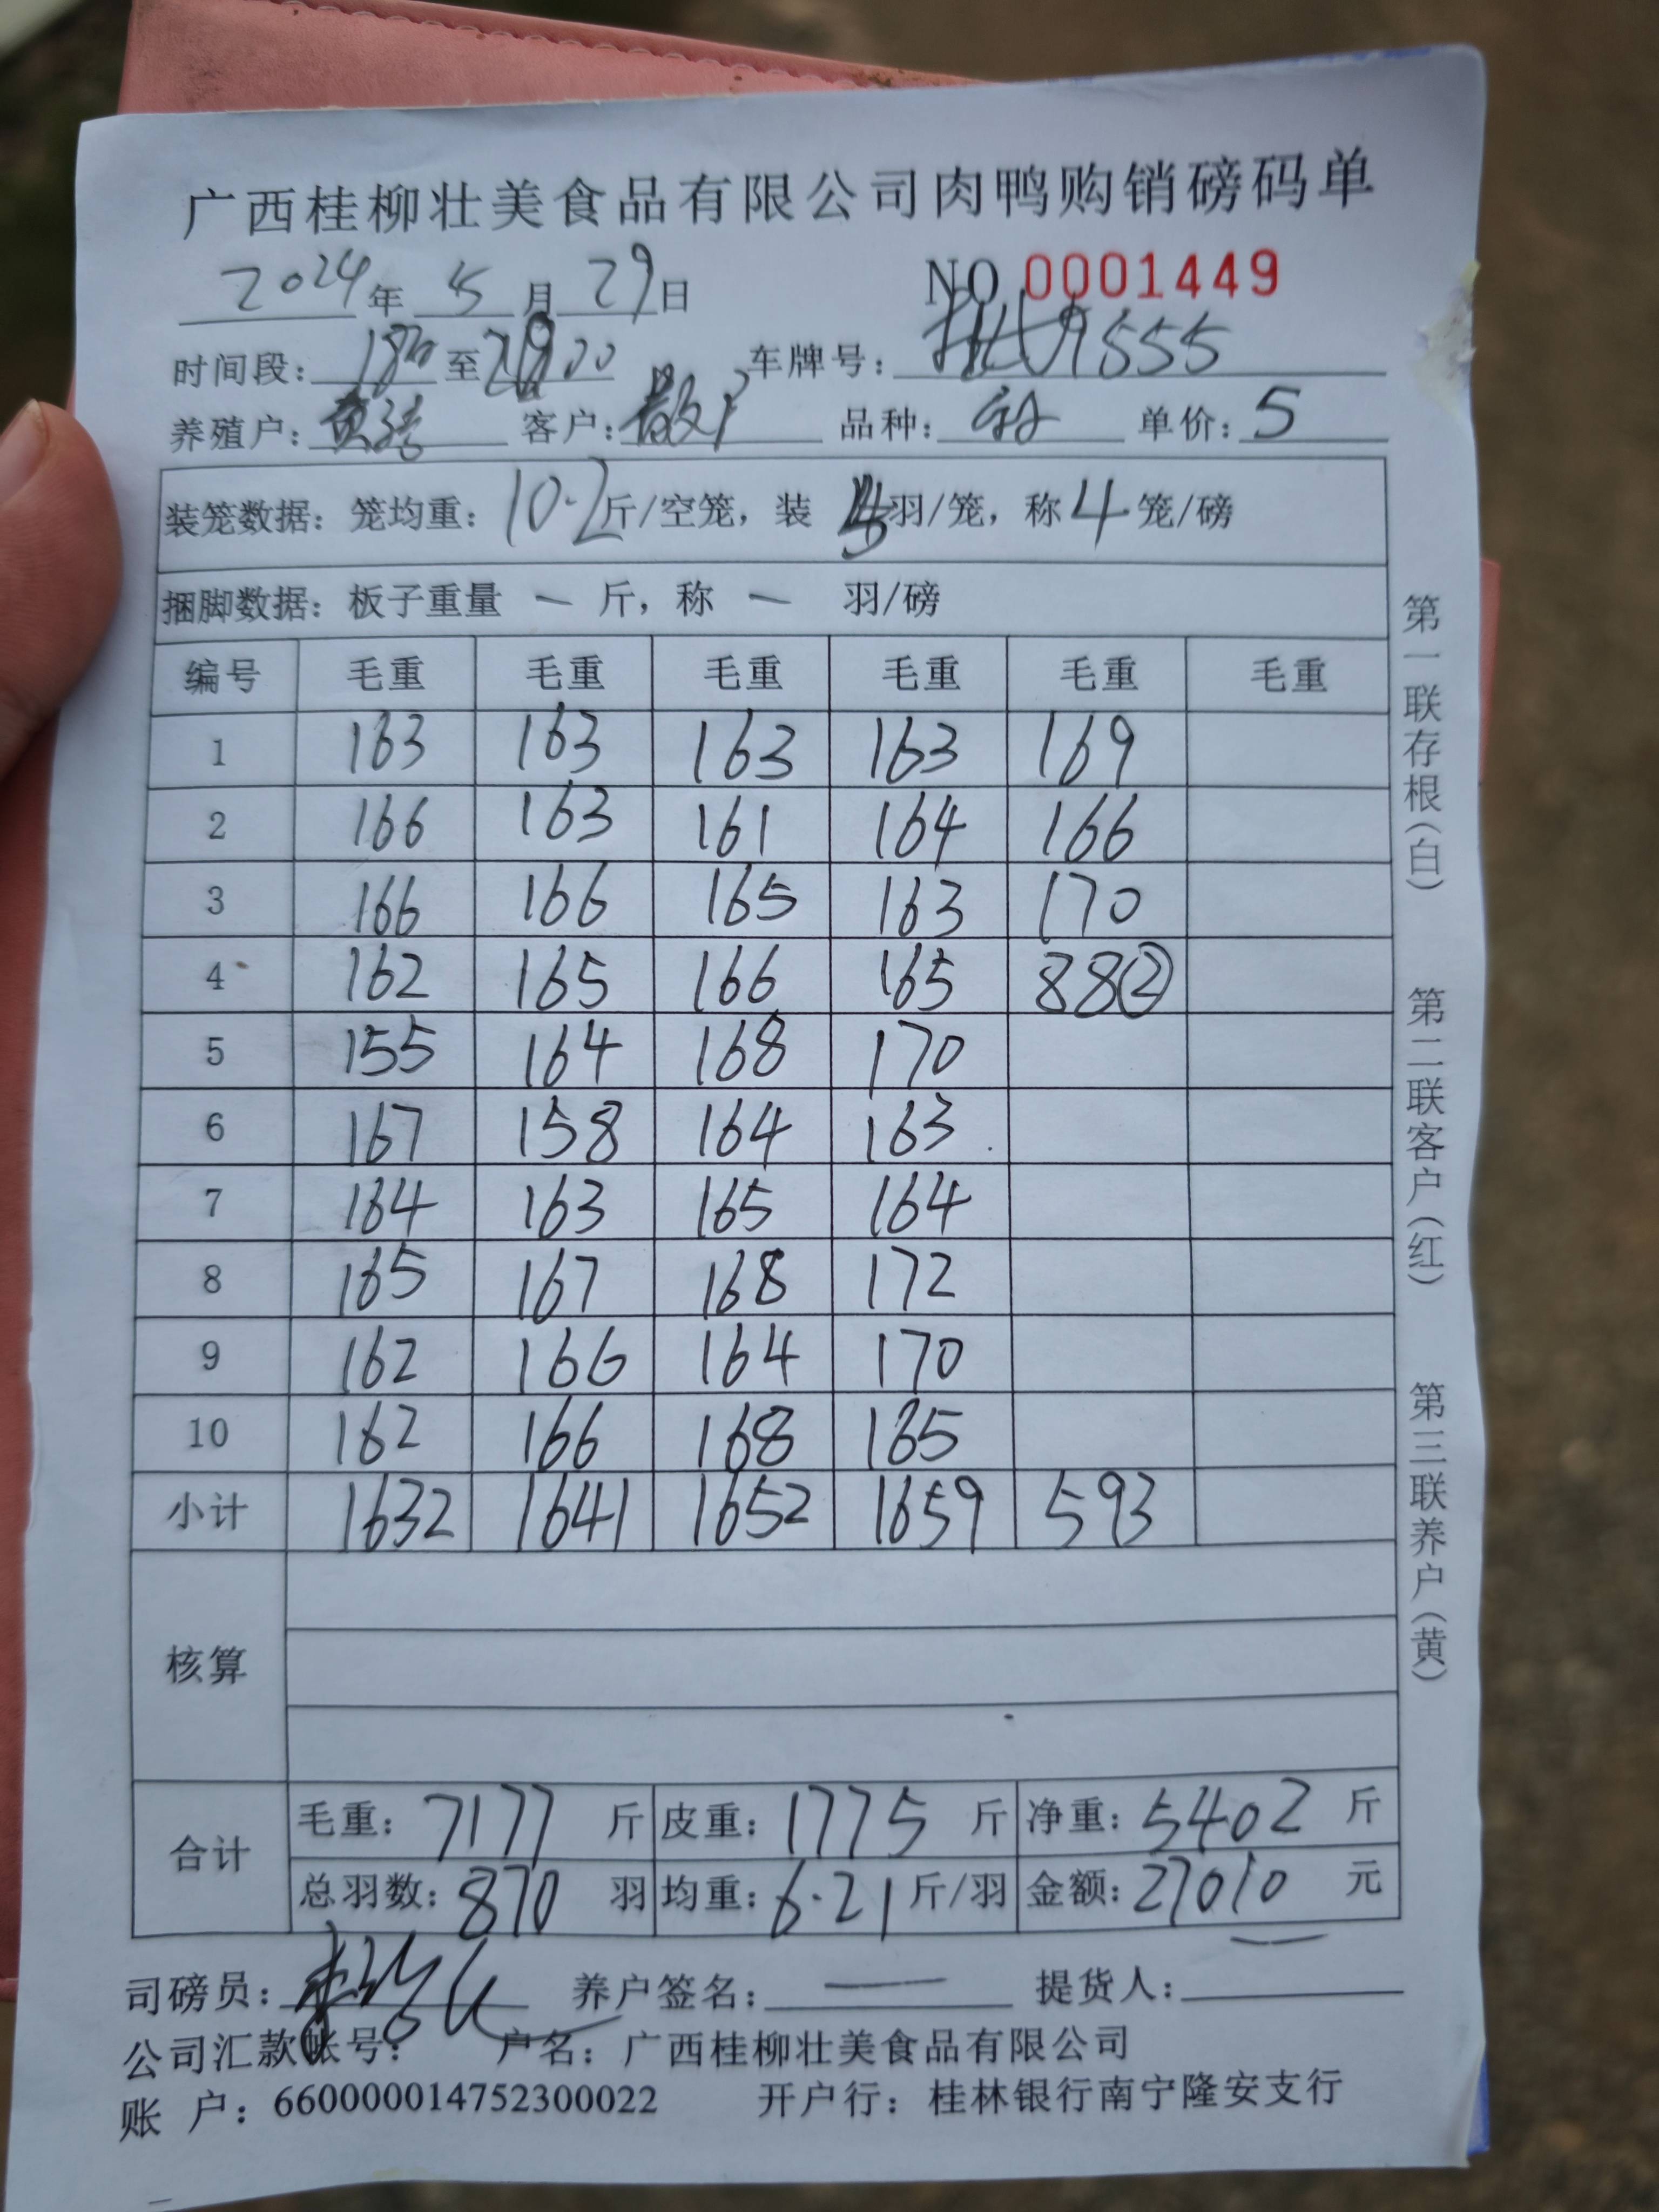 广西桂柳壮美食品有限公司肉鸭购销磅码单
2024年 5月29日 NO 0001449
时间段: 至 车牌号: 9555
养殖户: 客户: 散户 品种: 单价: 5
装笼数据: 笼均重: 10.2斤/空笼, 装 5羽/笼, 称4笼/磅
捆脚数据: 板子重量 一 斤, 称 一 羽/磅
编号 毛重 毛重 毛重 毛重 毛重 毛重
1 163 163 163 163 169
2 166 163 161 164 166
3 166 166 165 163 170
4 162 165 166 165 88②
5 155 164 168 170
6 167 158 164 163
7 164 163 165 164
8 165 167 168 172
9 162 166 164 170
10 162 166 168 165
小计 1632 1641 1652 1659 593
核算
合计 毛重: 7177 斤 皮重: 1775 斤 净重: 5402 斤
总羽数: 870 羽 均重: 6.21斤/羽 金额: 27010 元
司磅员: 养户签名: — 提货人:
公司汇款帐号: 户名: 广西桂柳壮美食品有限公司
账 户: 660000014752300022 开户行: 桂林银行南宁隆安支行
第一联存根(白) 第二联客户(红) 第三联养户(黄)